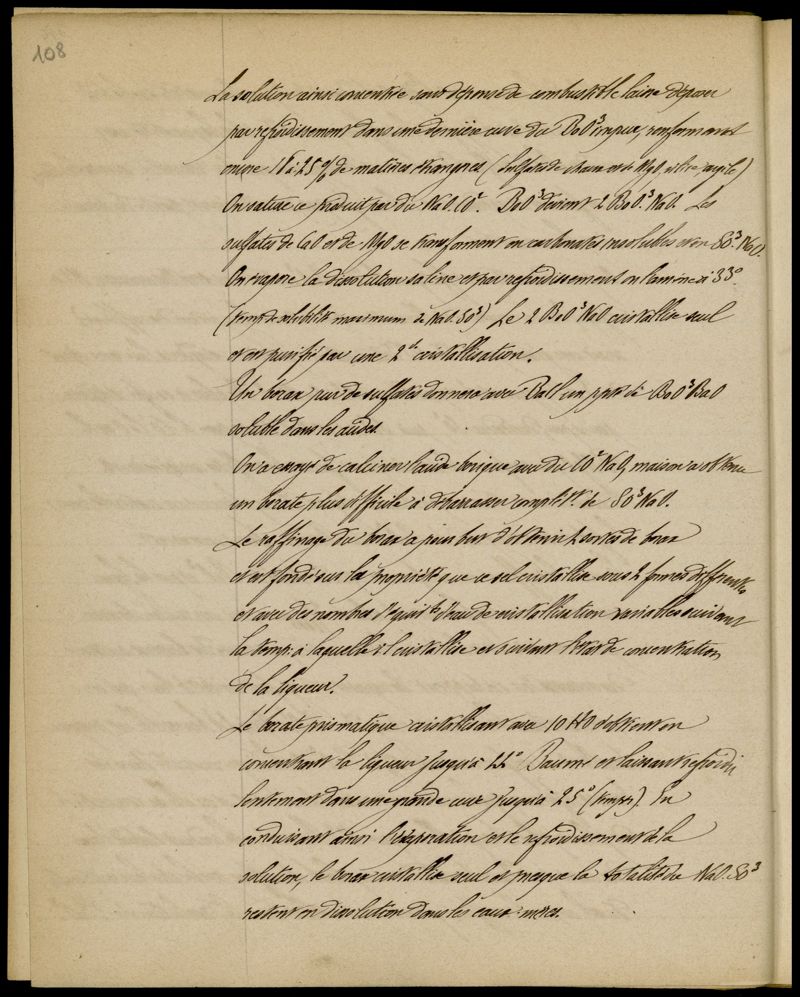 108
La solution ainsi concentrée sans dépense de combustible laisse déposer
par refroidissement dans une dernière cuve du BoO³ impur, renfermant
encore 18 à 25 % de matières étrangères (sulfates de chaux et de MgO, silice, argile)
On sature ce produit par du NaO.CO². BoO³ devient 2 BoO³.NaO. Les
sulfates de CaO et de MgO se transforment en carbonates insolubles et en SO³.NaO.
On évapore la dissolution saline et par refroidissement on l'amène à 33°
(temp. de solubilité maximum de NaO.SO³) Le 2 BoO³NaO cristallise seul
et est purifié par une 2e cristallisation.
Un borax pur de sulfates donnera avec BaCl un ppté de BoO³BaO
soluble dans les acides.
On a essayé de calciner l'acide borique avec du CO²NaO, mais on a obtenu
un borate plus difficile à débarrasser complt. de SO³NaO.
Le raffinage du borax a pour but d'obtenir 2 sortes de borax
et est fondé sur la propriété que ce sel cristallise sous 2 formes différentes
et avec des nombres d'équivts d'eau de cristallisation variables suivant
la temp. à laquelle il cristallise et suivant l'état de concentration
de la liqueur.
Le borate prismatique cristallisant avec 10 HO s'obtient en
concentrant la liqueur jusqu'à 22° Baumé et laissant refroidir
lentement dans une grande cuve jusqu'à 25° (temps). En
conduisant ainsi l'évaporation et le refroidissement de la
solution, le borax cristallise seul et presque la totalité du NaO.SO³
restent en dissolution dans les eaux-mères.